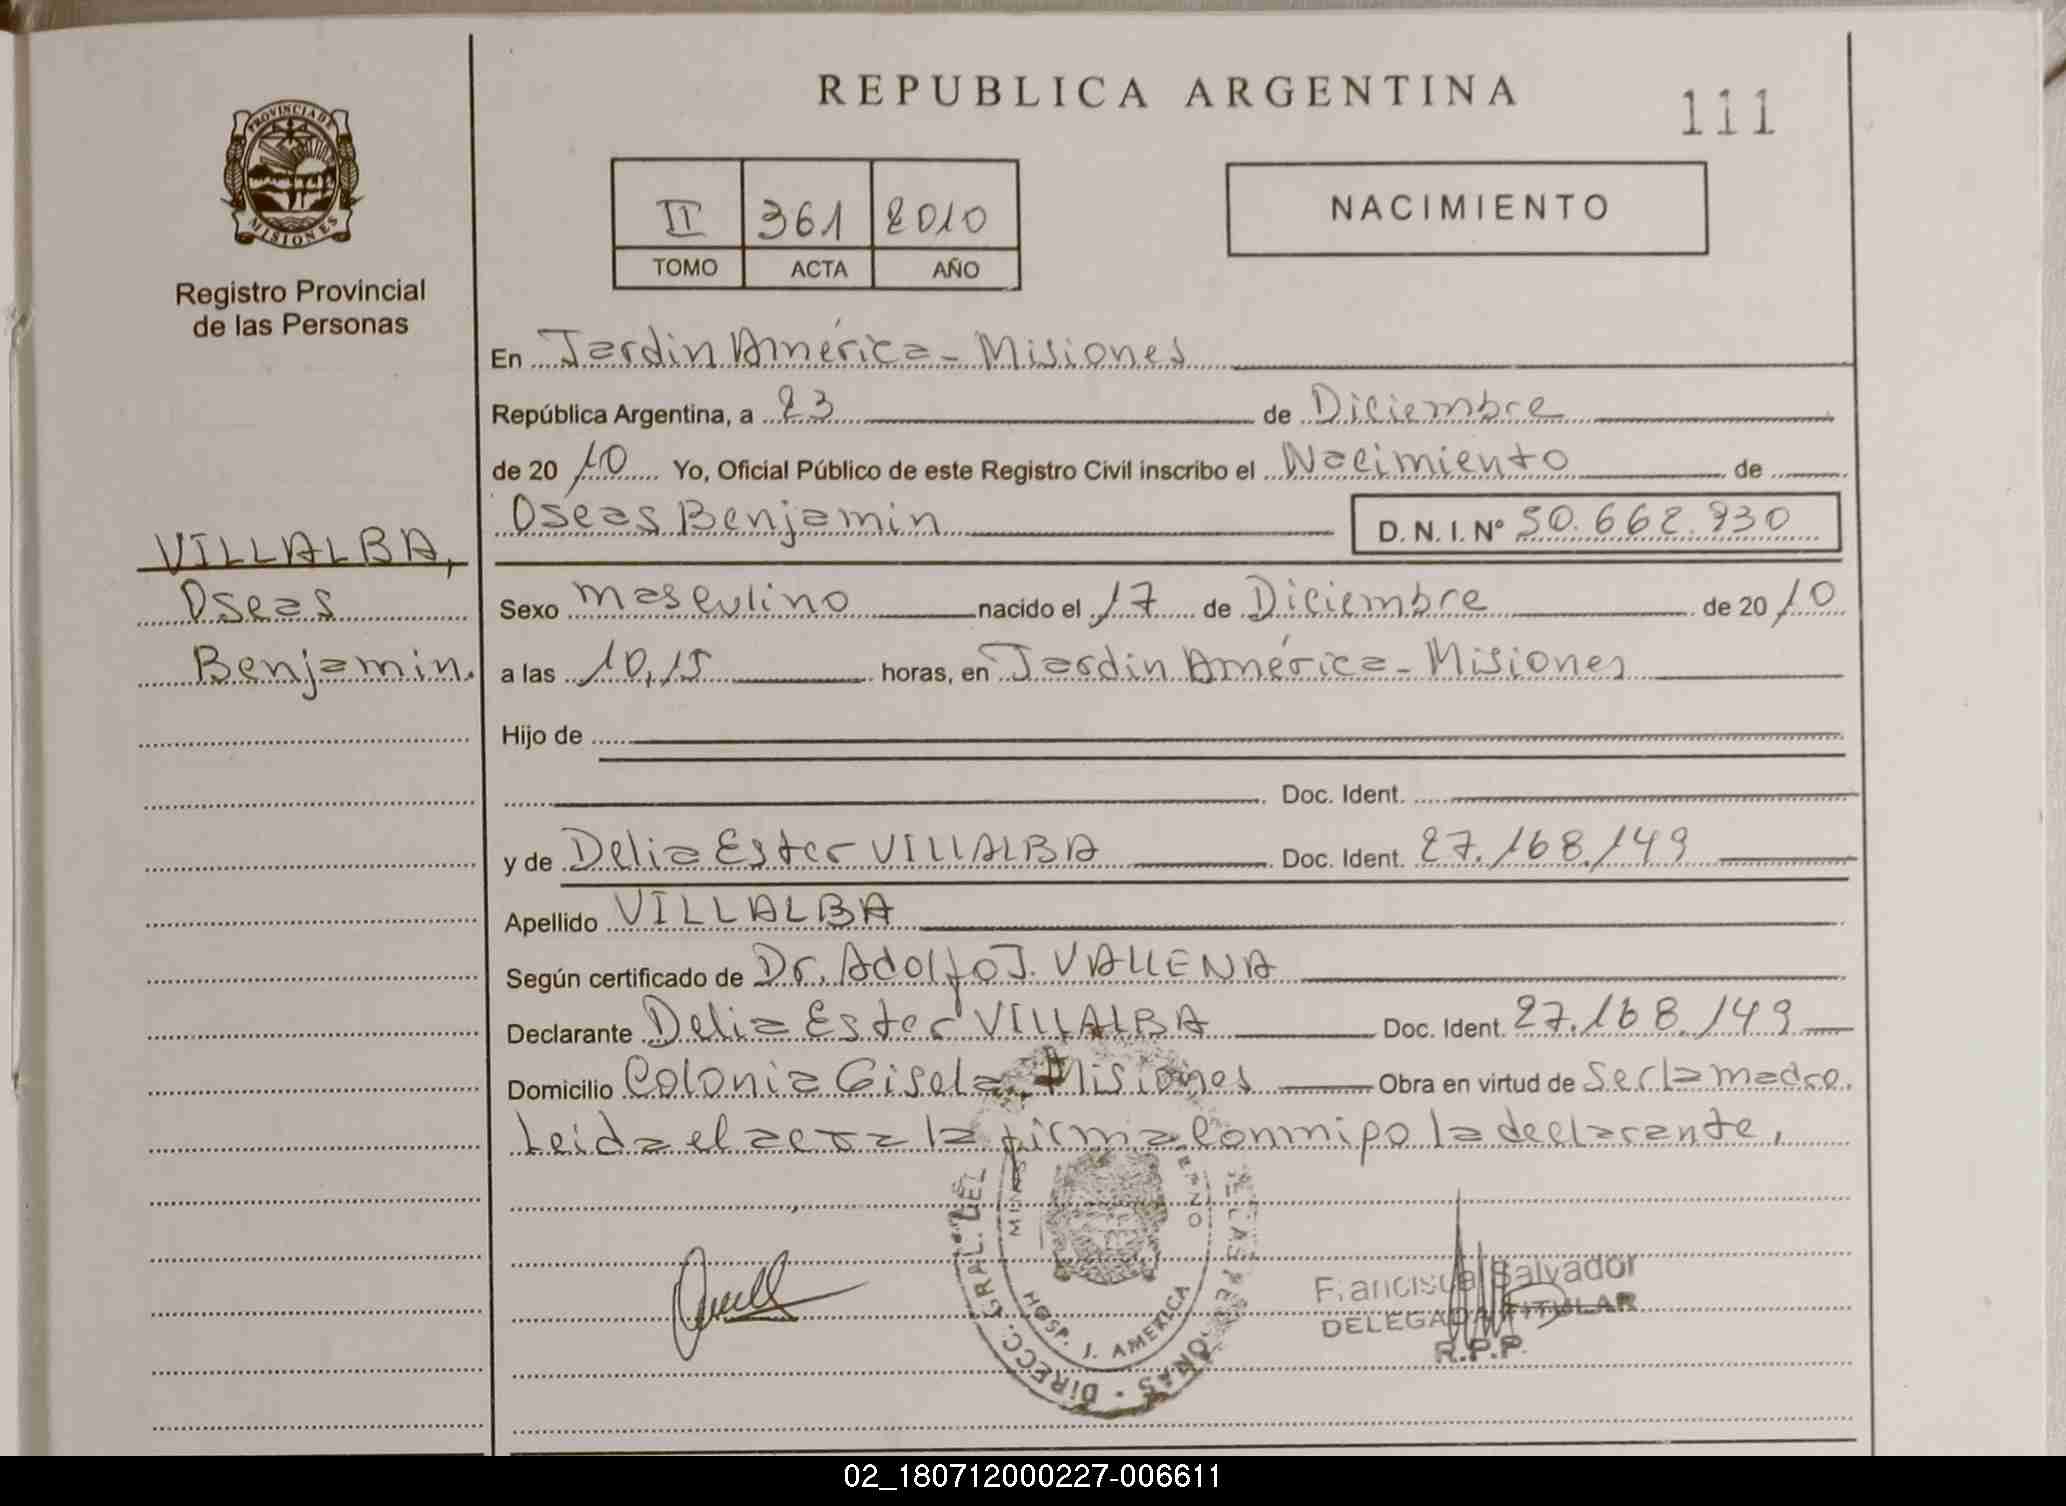 REPUBLICA ARGENTINA
111
PROVINCIA DE
MISIONES
Registro Provincial
de las Personas
II 361 2010
TOMO ACTA AÑO
NACIMIENTO
En Jardin América - Misiones
República Argentina, a 23 de Diciembre
de 20 10 Yo, Oficial Público de este Registro Civil inscribo el Nacimiento de
Oseas Benjamin D. N. I. Nº 50.662.930
VILLALBA,
Oseas
Benjamin.
Sexo masculino nacido el 17 de Diciembre de 20 10
a las 10,15 horas, en Jardin América - Misiones
Hijo de
Doc. Ident.
y de Delia Ester VILLALBA Doc. Ident. 27.168.149
Apellido VILLALBA
Según certificado de Dr. Adolfo J. VALLENA
Declarante Delia Ester VILLALBA Doc. Ident. 27.168.149
Domicilio Colonia Gisela Misiones Obra en virtud de ser la madre.
Leida el acta la firma conmigo la declarante,
DIRECC. GRAL. DEL DE LAS PERSONAS
HOSP. J. AMERICA
Francisca Salvador
DELEGADA TITULAR
R.P.P.
02_180712000227-006611